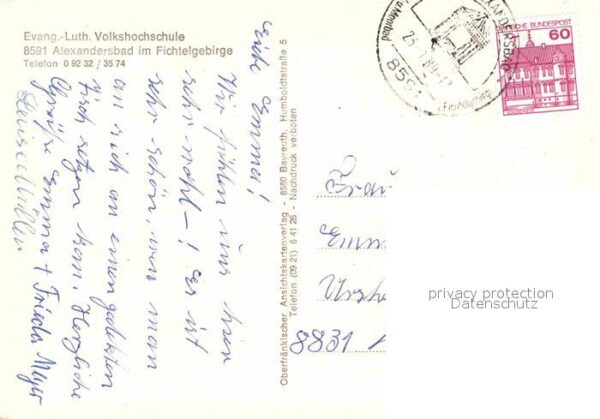 Evang.-Luth. Volkshochschule
8591 Alexandersbad im Fichtelgebirge
Telefon 0 92 32 / 35 74
Emma!
Wir fühlen uns hier
sehr wohl -! Es ist
sehr schön, wenn man
an sich an einen gedeckten
Tisch setzen kann. Herzliche
Grüße Emma + Frieda Mayer
Oberfränkischer Ansichtskartenverlag - 8580 Bayreuth, Humboldtstraße 5
Telefon (09 21) 6 41 26 - Nachdruck verboten
8591
DEUTSCHE BUNDESPOST
60
Frau
Emm
Ursh
8831
privacy protection
Datenschutz